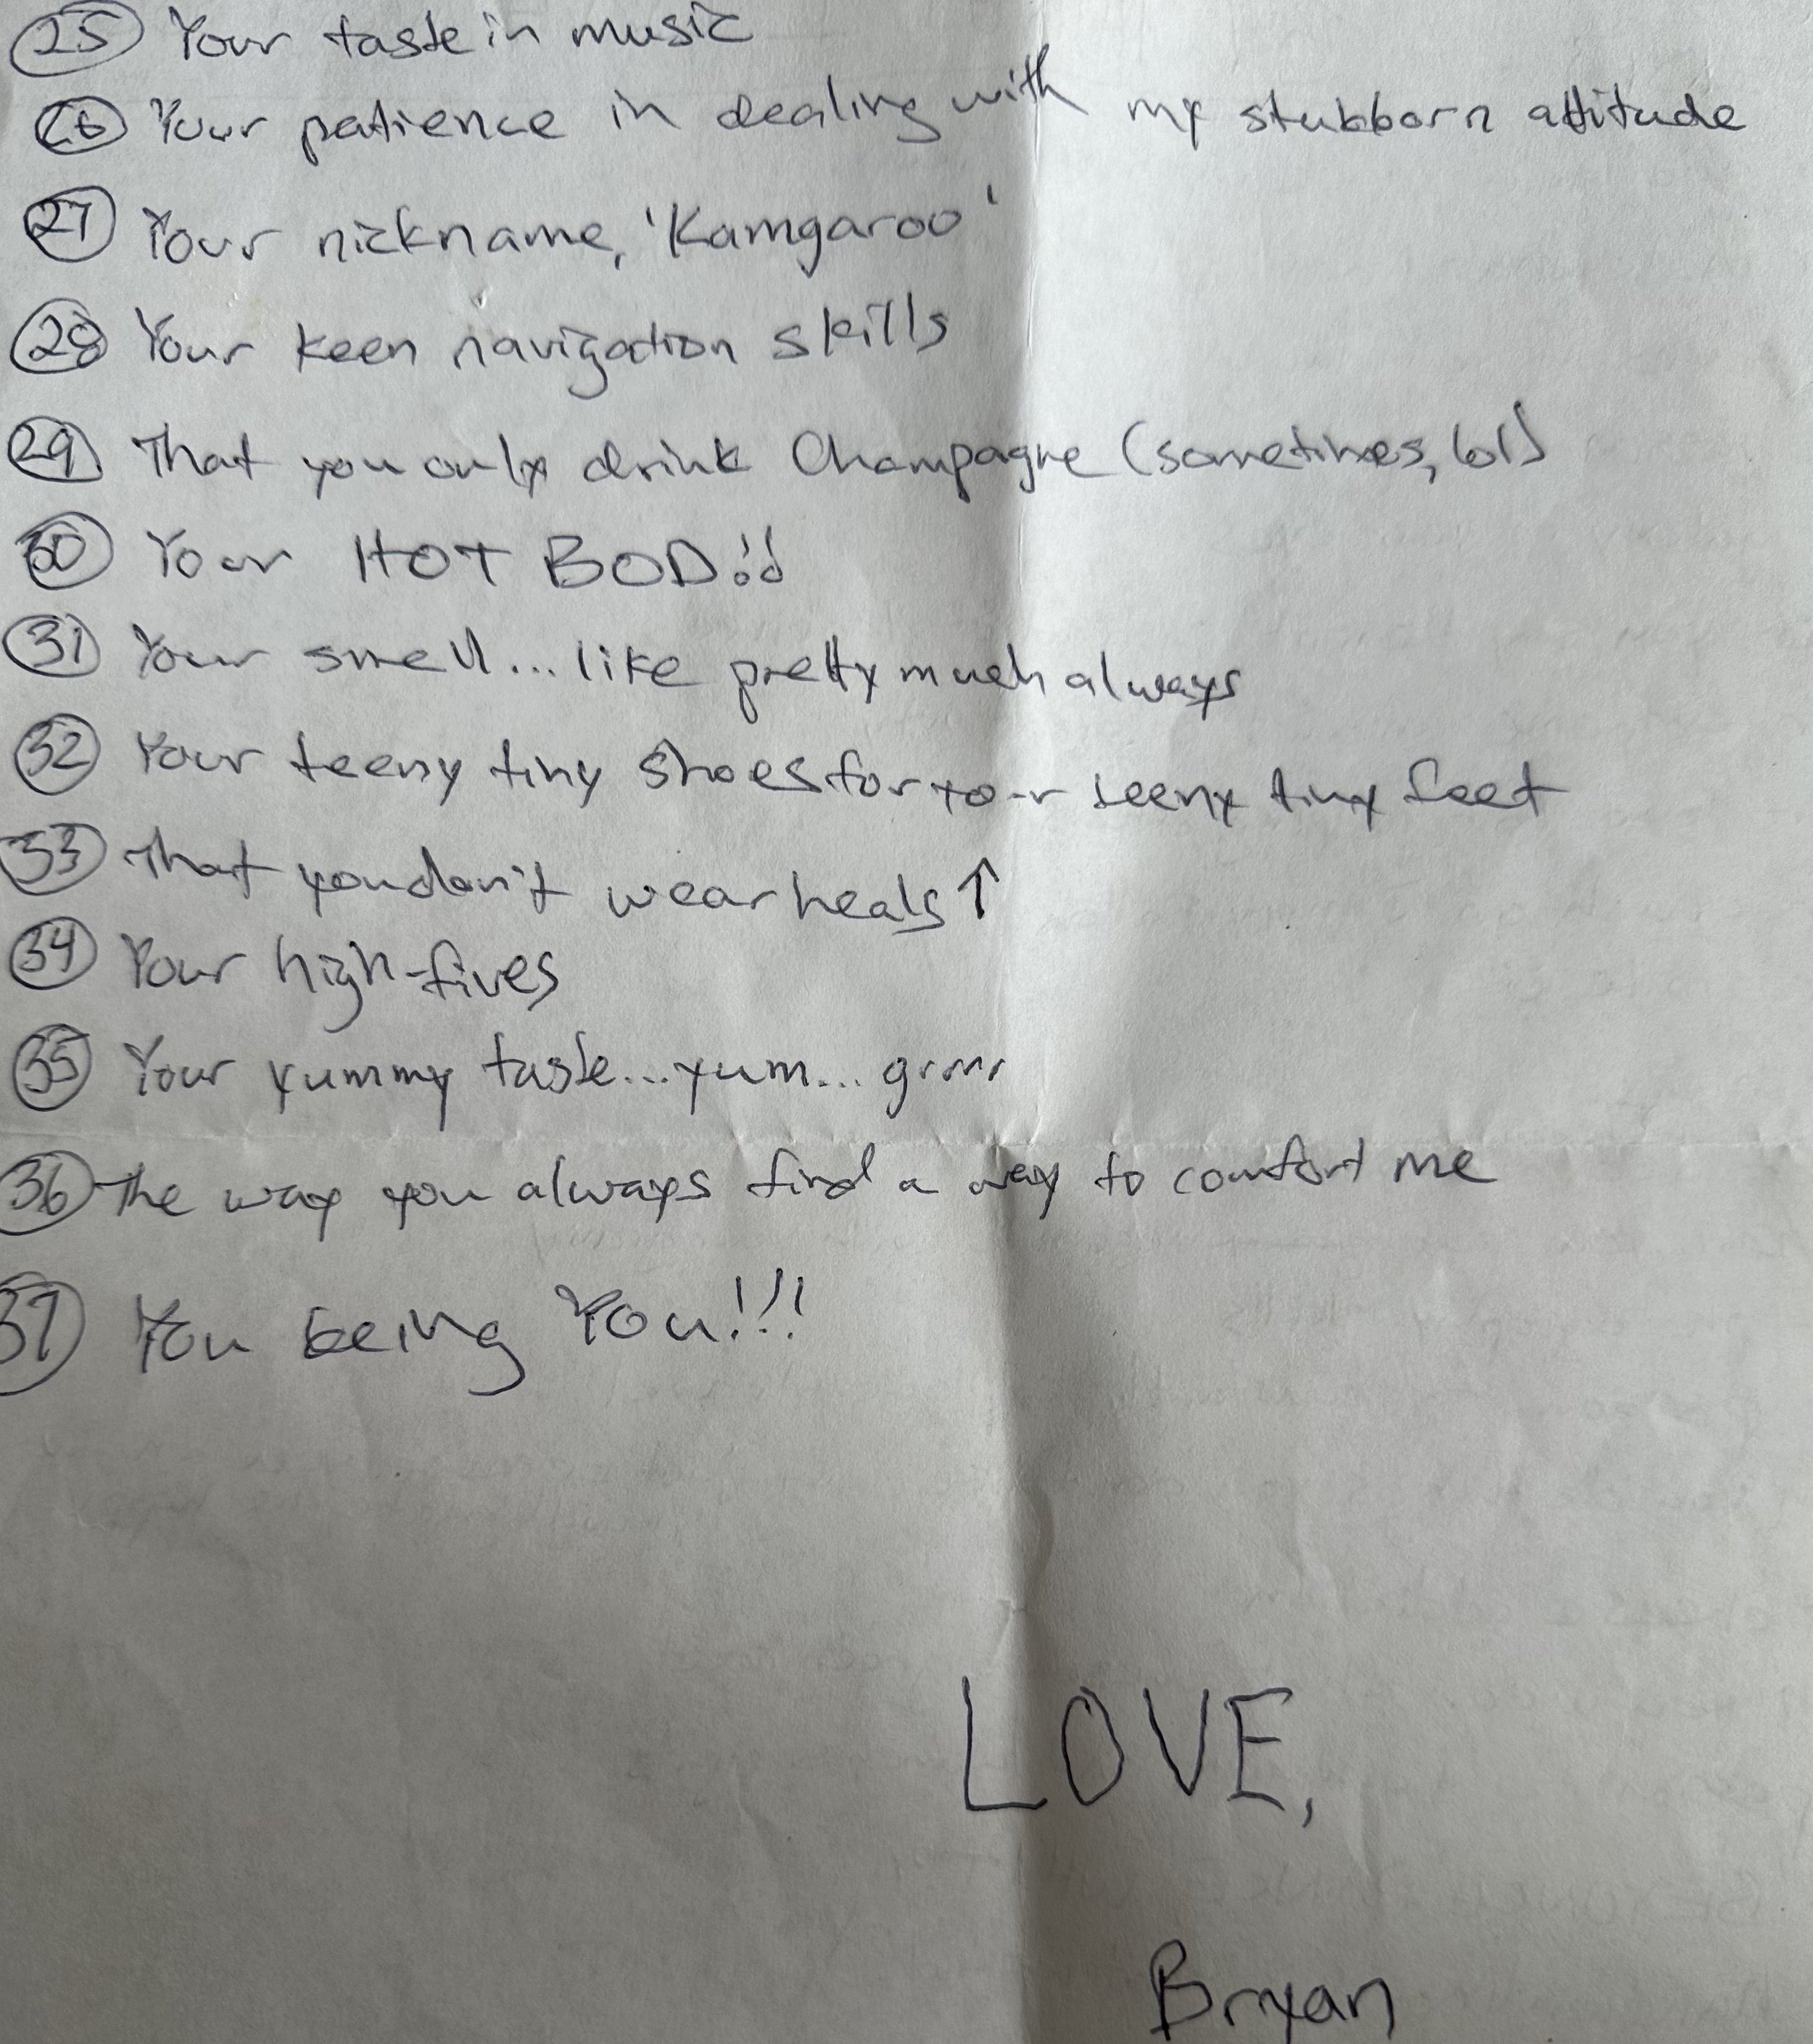 25 Your taste in music
26 Your patience in dealing with my stubborn attitude
27 Your nickname, 'Kamgaroo'
28 Your keen navigation skills
29 That you only drink Champagne (sometimes, lol)
30 Your HOT BOD!!
31 Your smell... like pretty much always
32 Your teeny tiny shoes for your teeny tiny feet
33 That you don't wear heals ↑
34 Your high-fives
35 Your yummy taste... yum... grrrr
36 The way you always find a way to comfort me
37 You being You!!!
LOVE,
Bryan